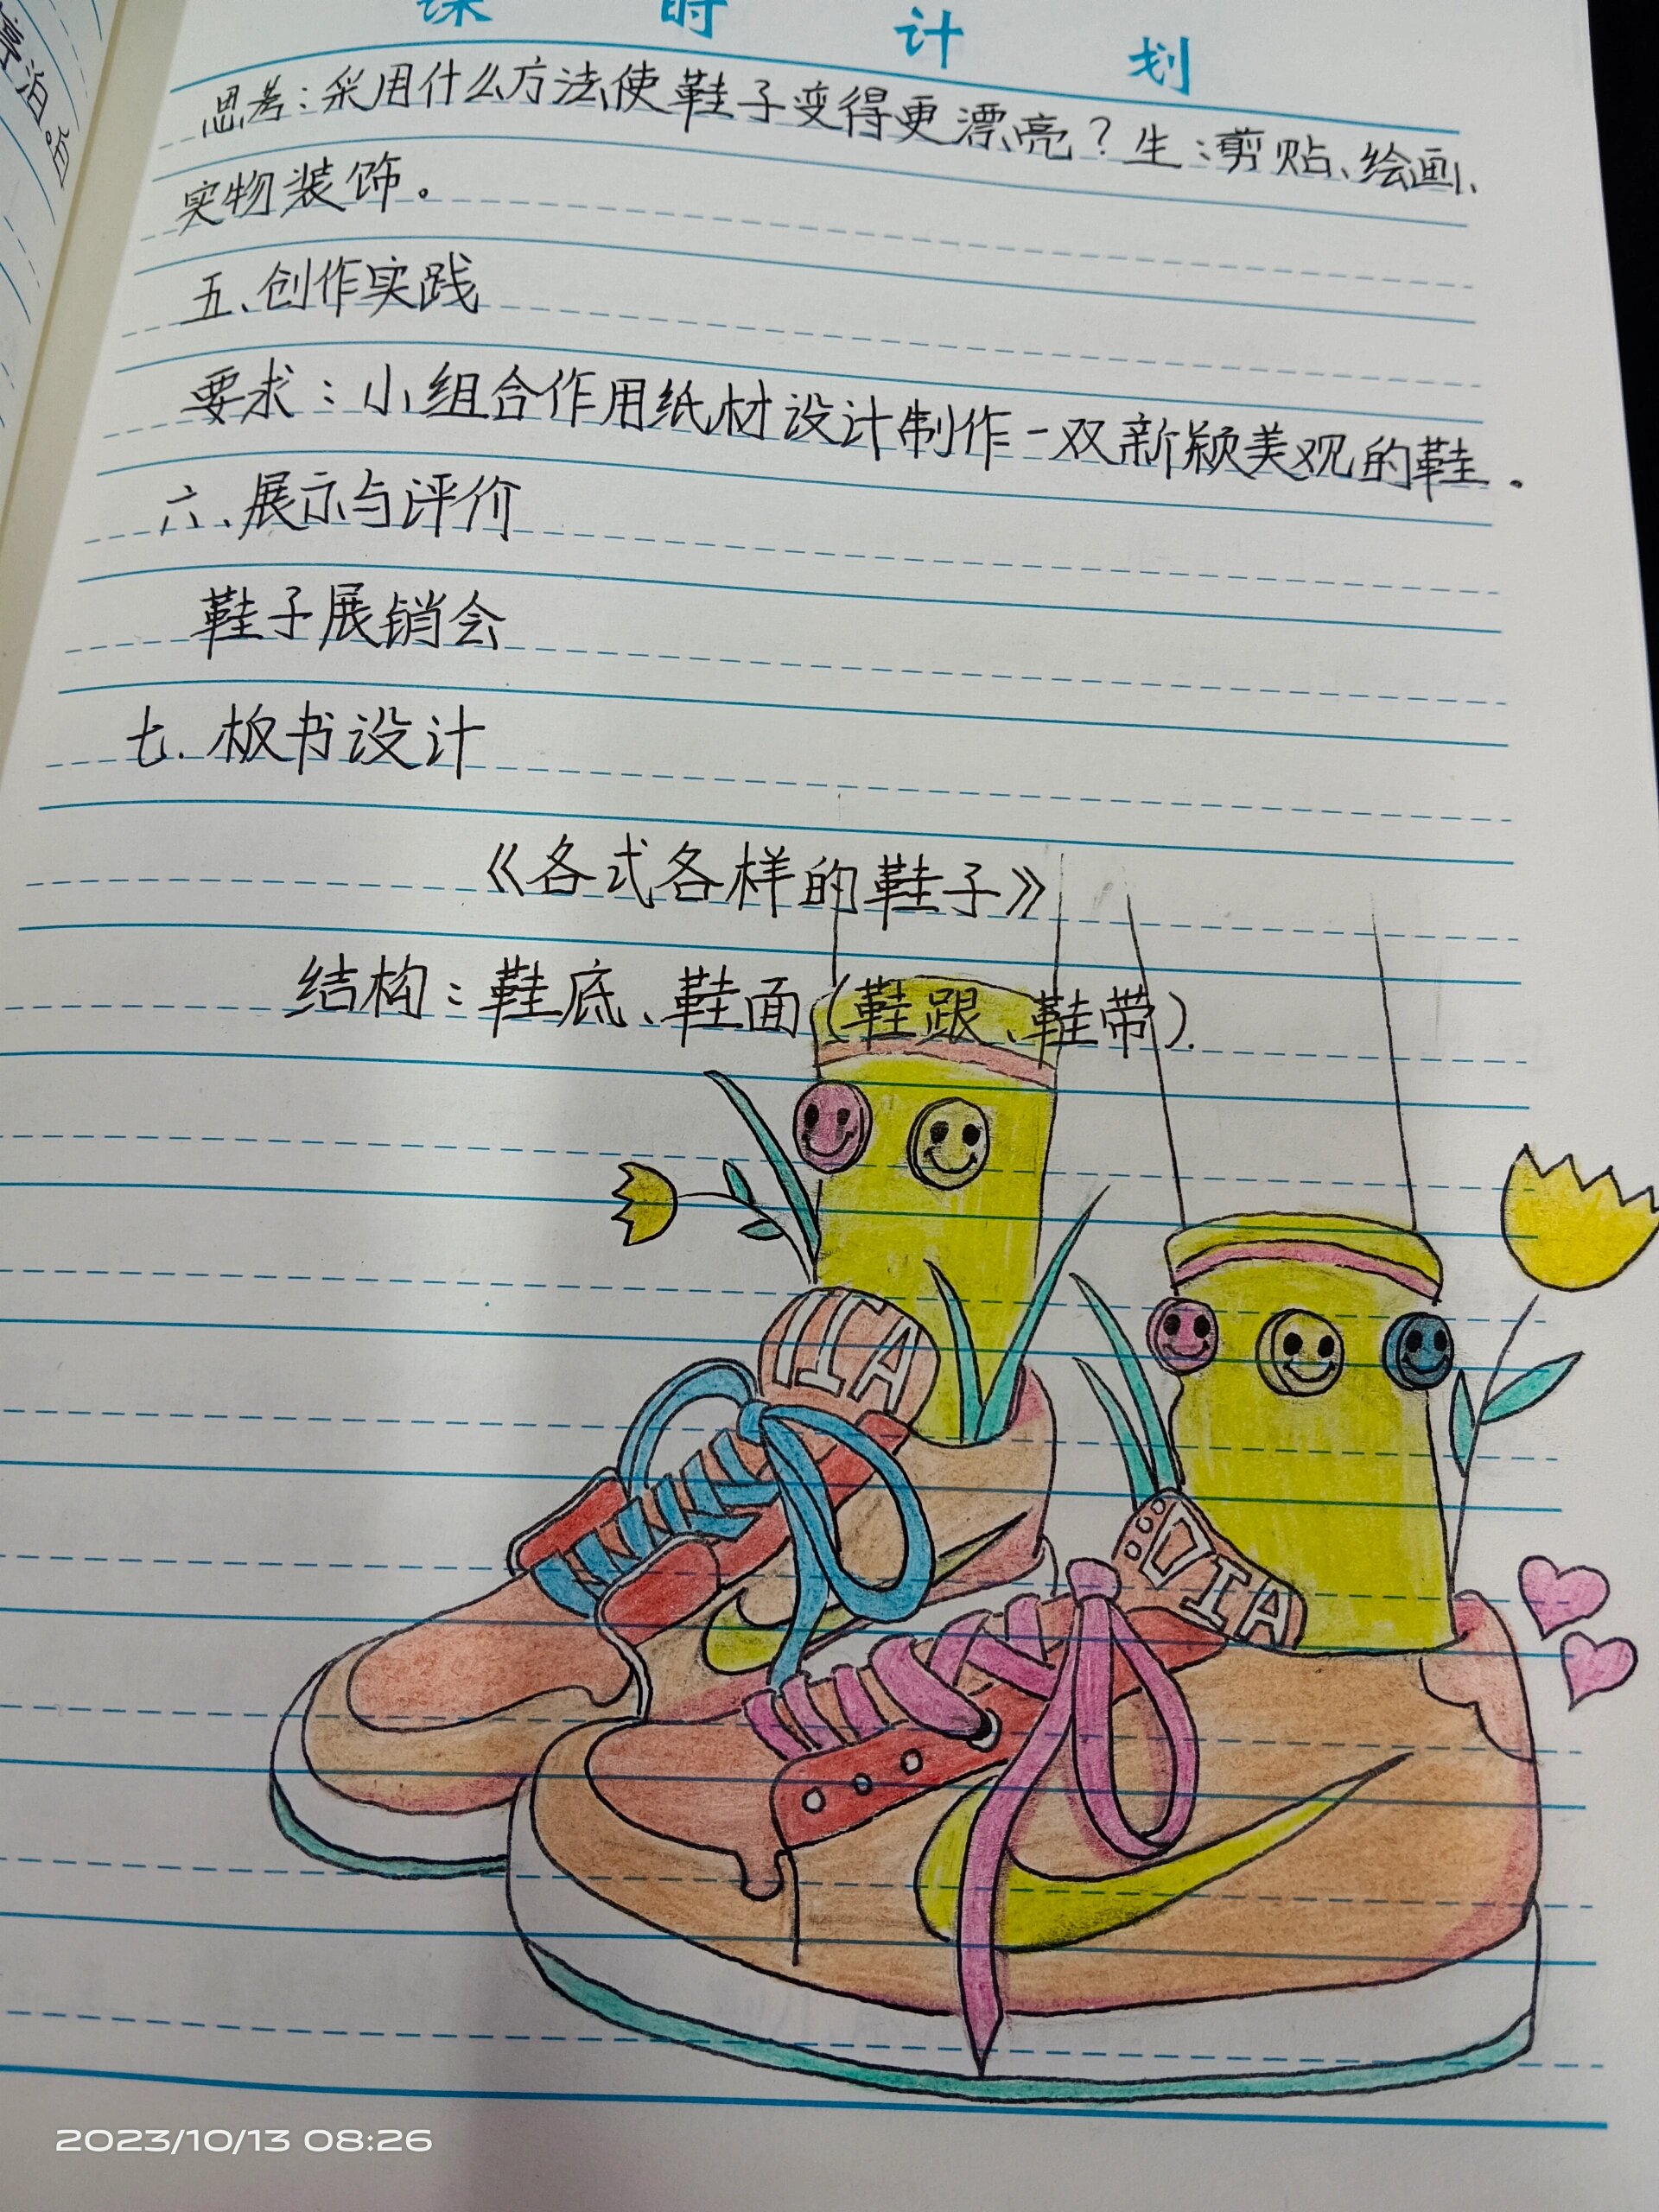 课时计划
思考：采用什么方法使鞋子变得更漂亮？生：剪贴、绘画、
实物装饰。
五、创作实践
要求：小组合作用纸材设计制作一双新颖美观的鞋.
六、展示与评价
鞋子展销会
七.板书设计
《各式各样的鞋子》
结构：鞋底、鞋面(鞋跟、鞋带).
IIA
DIA
2023/10/13 08:26